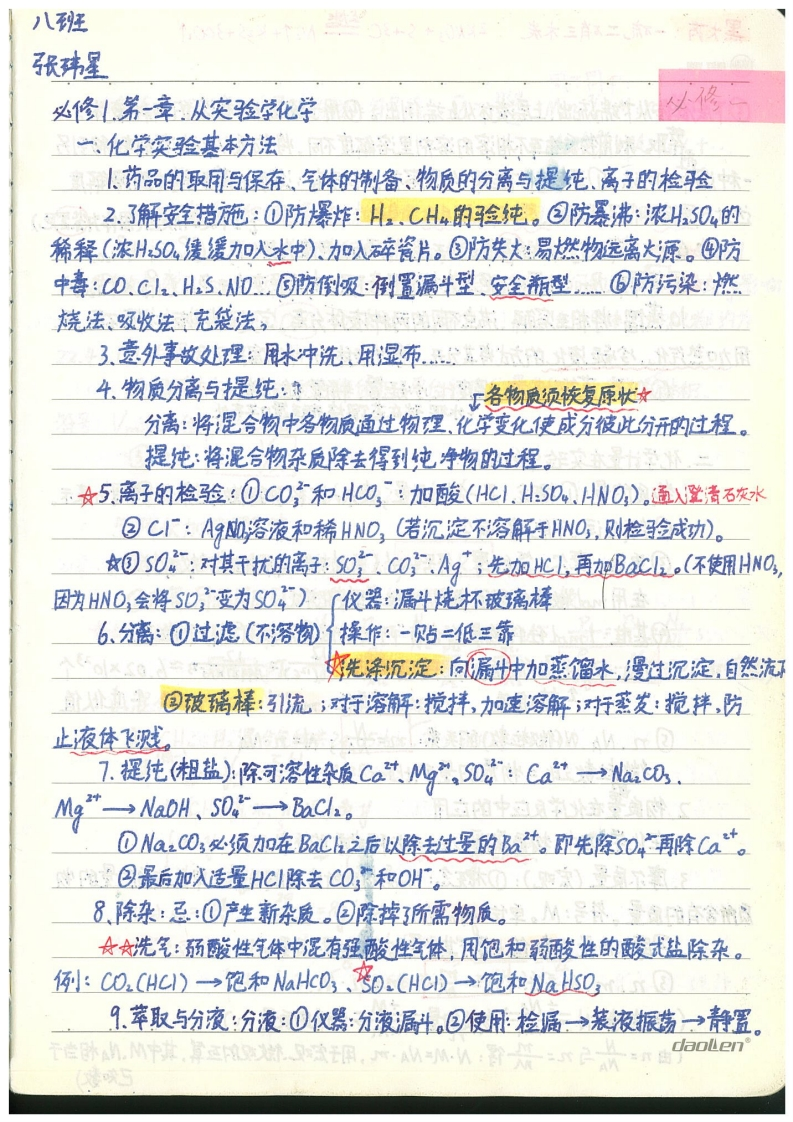 八班
张玮星
必修
必修1.第一章:从实验学化学
一、化学实验基本方法
1.药品的取用与保存、气体的制备、物质的分离与提纯、离子的检验
2.了解安全措施:①防爆炸:H₂、CH₄的验纯。②防暴沸:浓H₂SO₄的
稀释(浓H₂SO₄缓缓加入水中)、加入碎瓷片。③防失火:易燃物远离火源。④防
中毒:CO、Cl₂、H₂S、NO…⑤防倒吸:倒置漏斗型、安全瓶型……⑥防污染:燃
烧法、吸收法、充袋法。
3.意外事故处理:用水冲洗、用湿布……
4.物质分离与提纯:
各物质须恢复原状☆
分离:将混合物中各物质通过物理、化学变化使成分彼此分开的过程。
提纯:将混合物杂质除去得到纯净物的过程。
☆5.离子的检验:①CO₃²⁻和HCO₃⁻:加酸(HCl、H₂SO₄、HNO₃)。通入澄清石灰水
②Cl⁻:AgNO₃溶液和稀HNO₃(若沉淀不溶解于HNO₃,则检验成功)。
☆③SO₄²⁻:对其干扰的离子:SO₃²⁻、CO₃²⁻、Ag⁺;先加HCl,再加BaCl₂。(不使用HNO₃,
因为HNO₃会将SO₃²⁻变为SO₄²⁻)
仪器:漏斗烧杯玻璃棒
6.分离:①过滤(不溶物)操作:一贴二低三靠
☆洗涤沉淀:向漏斗中加蒸馏水,漫过沉淀,自然流下
②玻璃棒:引流;对于溶解:搅拌,加速溶解;对于蒸发:搅拌,防
止液体飞溅。
7.提纯(粗盐):除可溶性杂质Ca²⁺、Mg²⁺、SO₄²⁻:Ca²⁺→Na₂CO₃、
Mg²⁺→NaOH、SO₄²⁻→BaCl₂。
①Na₂CO₃必须加在BaCl₂之后以除去过量的Ba²⁺。即先除SO₄²⁻再除Ca²⁺。
②最后加入适量HCl除去CO₃²⁻和OH⁻。
8.除杂:忌:①产生新杂质。②除掉了所需物质。
☆☆洗气:弱酸性气体中混有强酸性气体,用饱和弱酸性的酸式盐除杂。
例:CO₂(HCl)→饱和NaHCO₃、☆SO₂(HCl)→饱和NaHSO₃
9.萃取与分液:分液:①仪器:分液漏斗。②使用:检漏→装液振荡→静置。
daolien®